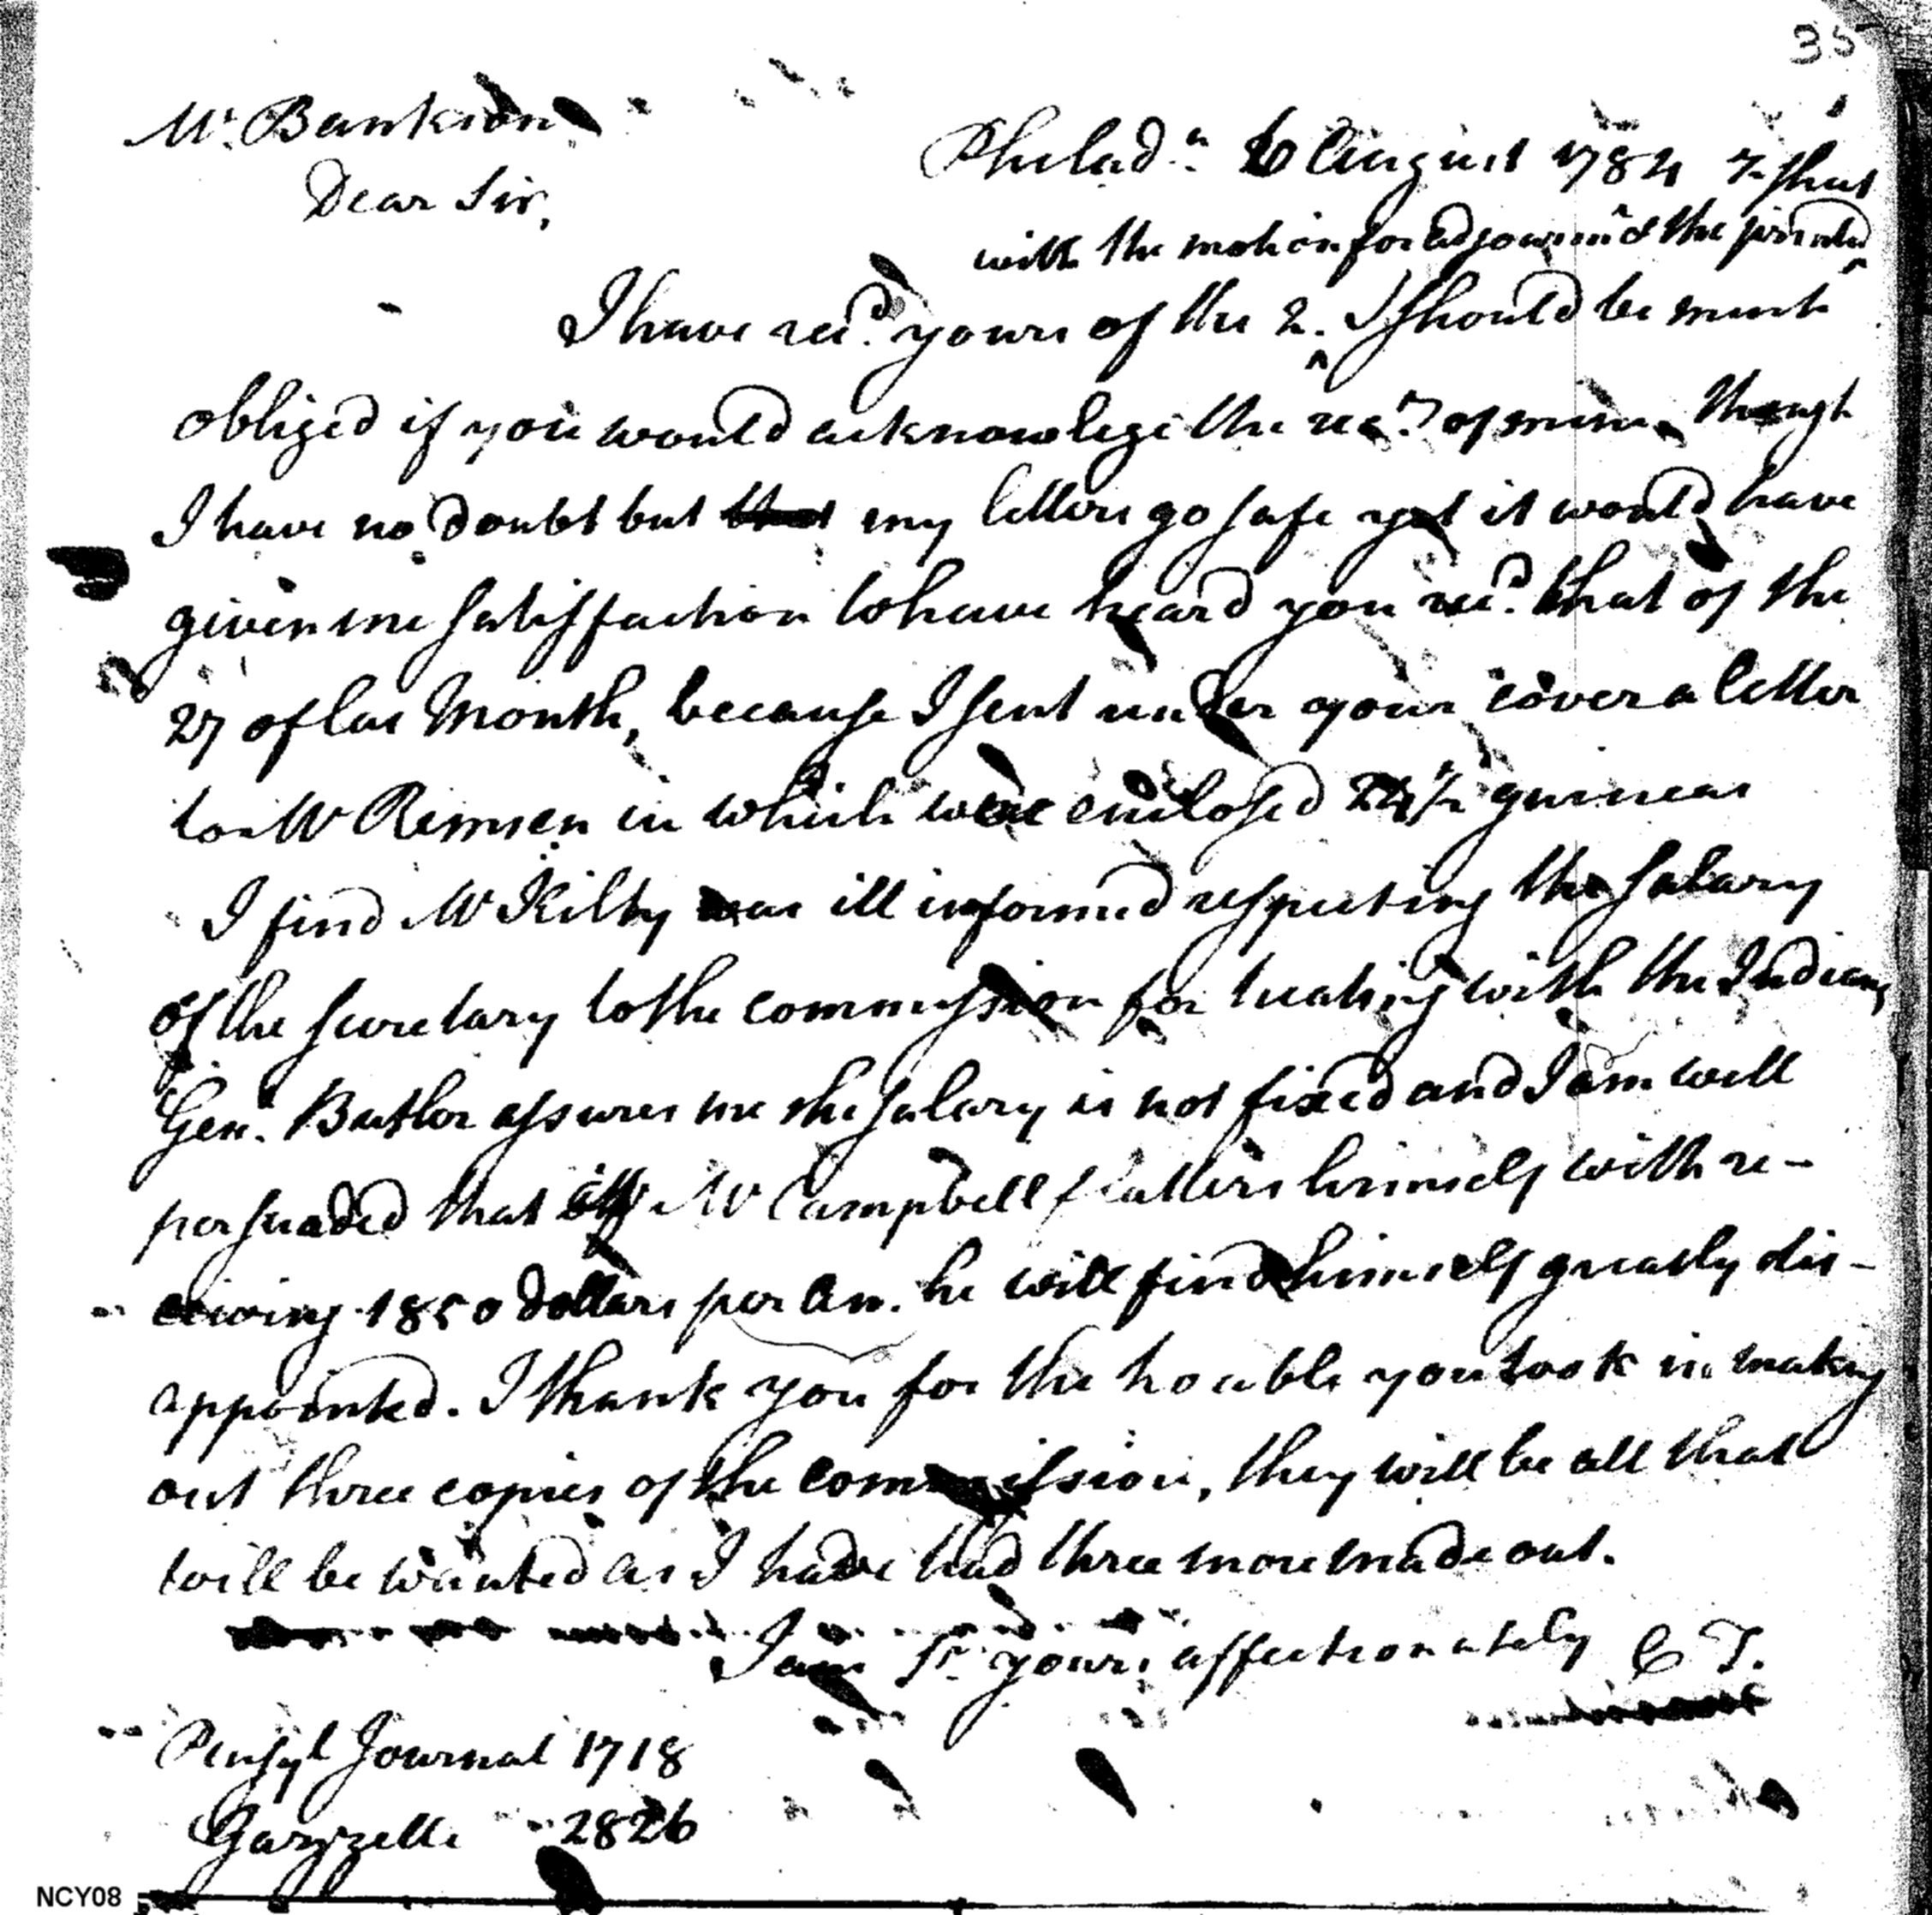 35
Mr. Bankson
Philada. 6 August 1784
Dear Sir,
with the motion for adjournmt & the printed
I have recd. yours of the 2. I should be much
obliged if you would acknowlege the rect. of mine though
I have no doubt but that my letters go safe yet it would have
given me satisfaction to have heard you recd. that of the
27 of las Month, because I sent under your cover a letter
to Mr Remsen in which were enclosed 24½ guineas
I find Mr Kilty was ill informed respecting the salary
of the secretary to the commission for treating with the Indians
Genl. Butler assures me the salary is not fixed and I am well
persuaded that if Mr Campbell flatters himself with re-
ceiving 1850 dollars per An. he will find himself greatly dis-
appointed. I thank you for the trouble you took in making
out three copies of the commission, they will be all that
will be wanted as I have had three more made out.
I am Sr yours affectionately C T.
Pensyl Journal 1718
Gazzette 2826
NCY08